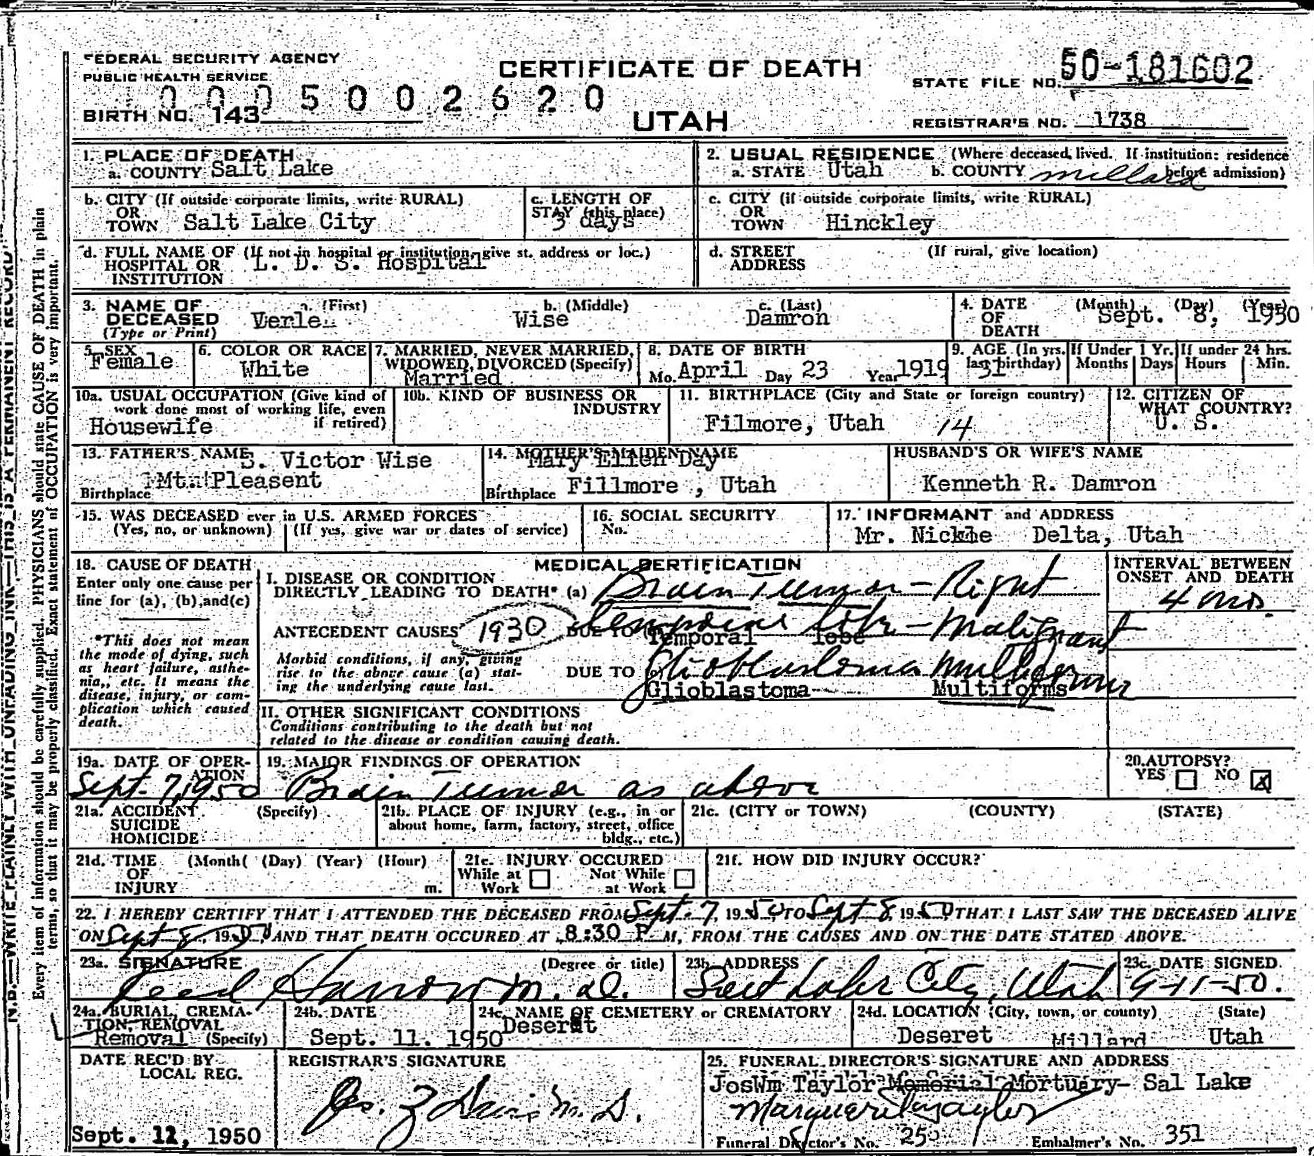 FEDERAL SECURITY AGENCY
PUBLIC HEALTH SERVICE
CERTIFICATE OF DEATH
STATE FILE NO. 50-181602
0005002620
BIRTH NO. 143
UTAH
REGISTRAR'S NO. 1738
1. PLACE OF DEATH
a. COUNTY Salt Lake
2. USUAL RESIDENCE (Where deceased lived. If institution: residence before admission)
a. STATE Utah b. COUNTY Millard
b. CITY (If outside corporate limits, write RURAL)
OR
TOWN Salt Lake City
c. LENGTH OF
STAY (this place)
3 days
c. CITY (if outside corporate limits, write RURAL)
OR
TOWN Hinckley
d. FULL NAME OF (If not in hospital or institution, give st. address or loc.)
HOSPITAL OR L. D. S. Hospital
INSTITUTION
d. STREET (If rural, give location)
ADDRESS
3. NAME OF DECEASED (Type or Print)
a. (First) b. (Middle) c. (Last)
Verle Wise Damron
4. DATE OF DEATH (Month) (Day) (Year)
Sept. 8, 1950
5. SEX
Female
6. COLOR OR RACE
White
7. MARRIED, NEVER MARRIED,
WIDOWED, DIVORCED (Specify)
Married
8. DATE OF BIRTH
Mo. April Day 23 Year 1919
9. AGE (In yrs. last birthday)
31
If Under 1 Yr. Months Days
If under 24 hrs. Hours Min.
10a. USUAL OCCUPATION (Give kind of
work done most of working life, even
if retired)
Housewife
10b. KIND OF BUSINESS OR
INDUSTRY
11. BIRTHPLACE (City and State or foreign country)
Filmore, Utah 14
12. CITIZEN OF
WHAT COUNTRY?
U. S.
13. FATHER'S NAME S. Victor Wise
Birthplace Mtn Pleasent
14. MOTHER'S MAIDEN NAME
Mary Ellen Day
Birthplace Fillmore , Utah
HUSBAND'S OR WIFE'S NAME
Kenneth R. Damron
15. WAS DECEASED ever in U.S. ARMED FORCES
(Yes, no, or unknown) (If yes, give war or dates of service)
16. SOCIAL SECURITY
No.
17. INFORMANT and ADDRESS
Mr. Nickle Delta, Utah
18. CAUSE OF DEATH
Enter only one cause per
line for (a), (b), and (c)
*This does not mean
the mode of dying, such
as heart failure, asthe-
nia,, etc. It means the
disease, injury, or com-
plication which caused
death.
MEDICAL CERTIFICATION
I. DISEASE OR CONDITION
DIRECTLY LEADING TO DEATH* (a) Brain Tumor - Right
ANTECEDENT CAUSES 1930 DUE TO temporal lobe - Malignant
Temporal lobe
Morbid conditions, if any, giving
rise to the above cause (a) stat-
ing the underlying cause last.
DUE TO Glioblastoma Multiforme
Glioblastoma Multiforms
II. OTHER SIGNIFICANT CONDITIONS
Conditions contributing to the death but not
related to the disease or condition causing death.
INTERVAL BETWEEN
ONSET AND DEATH
4 mos.
19a. DATE OF OPER-
ATION
Sept. 7, 1950
19. MAJOR FINDINGS OF OPERATION
Brain Tumor as above
20. AUTOPSY?
YES NO X
21a. ACCIDENT (Specify)
SUICIDE
HOMICIDE
21b. PLACE OF INJURY (e.g., in or
about home, farm, factory, street, office
bldg., etc.)
21c. (CITY or TOWN) (COUNTY) (STATE)
21d. TIME (Month( (Day) (Year) (Hour)
OF
INJURY m.
21e. INJURY OCCURED
While at Work Not While at Work
21f. HOW DID INJURY OCCUR?
22. I HEREBY CERTIFY THAT I ATTENDED THE DECEASED FROM Sept. 7, 1950 TO Sept 8, 1950 THAT I LAST SAW THE DECEASED ALIVE
ON Sept 8, 1950, AND THAT DEATH OCCURED AT 8:30 P M, FROM THE CAUSES AND ON THE DATE STATED ABOVE.
23a. SIGNATURE (Degree or title)
Reed Harrow M.D.
23b. ADDRESS
Salt Lake City, Utah
23c. DATE SIGNED
9-11-50.
24a. BURIAL, CREMA-
TION, REMOVAL
Removal (Specify)
24b. DATE
Sept. 11. 1950
24c. NAME OF CEMETERY or CREMATORY
Deseret
24d. LOCATION (City, town, or county) (State)
Deseret Millard Utah
DATE REC'D BY
LOCAL REG.
Sept. 12, 1950
REGISTRAR'S SIGNATURE
25. FUNERAL DIRECTOR'S SIGNATURE AND ADDRESS
JosWm Taylor Memorial Mortuary- Sal Lake
Marguerite Taylor
Funeral Director's No. 25 Embalmer's No. 351
N.B.—WRITE PLAINLY WITH UNFADING INK—THIS IS A PERMANENT RECORD
Every item of information should be carefully supplied. PHYSICIANS should state CAUSE OF DEATH in plain
terms, so that it may be properly classified. Exact statement of OCCUPATION is very important.